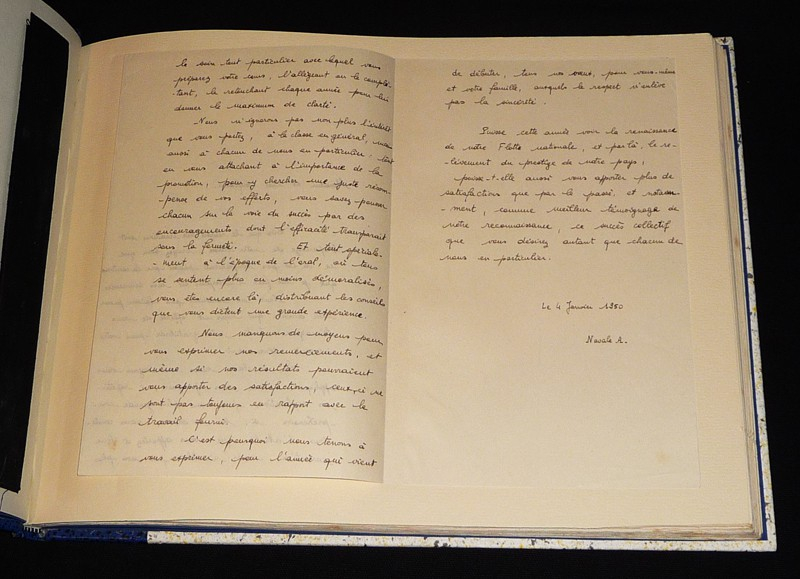 le soin tout particulier avec lequel vous
préparez votre cours, l'allégeant ou le complé-
-tant, le retouchant chaque année pour lui
donner le maximum de clarté.
Nous n'ignorons pas non plus l'intérêt
que vous portez, à la classe en général, mais
aussi à chacun de nous en particulier. Tout
en vous attachant à l'importance de la
promotion, pour y chercher une juste récom-
-pense de vos efforts, vous savez pousser
chacun sur la voie du succès par des
encouragements dont l'efficacité transparait
sous la fermeté. Et tout spéciale-
-ment à l'époque de l'oral, où tous
se sentent plus ou moins démoralisés,
vous êtes encore là, distribuant les conseils
que vous dictent une grande expérience.
Nous manquons de moyens pour
vous exprimer nos remerciements, et
même si nos résultats pouvaient
vous apporter des satisfactions, ceux-ci ne
sont pas toujours en rapport avec le
travail fourni.
C'est pourquoi nous tenons à
vous exprimer, pour l'année qui vient
de débuter, tous nos vœux, pour vous-même
et votre famille, auxquels le respect n'enlève
pas la sincérité.
Puisse cette année voir la renaissance
de notre Flotte nationale, et par là, le re-
-lèvement du prestige de notre pays;
puisse-t-elle aussi vous apporter plus de
satisfactions que par le passé, et notam-
-ment, comme meilleur témoignage de
notre reconnaissance, ce succès collectif
que vous désirez autant que chacun de
nous en particulier.
Le 4 Janvier 1950
Navale A.